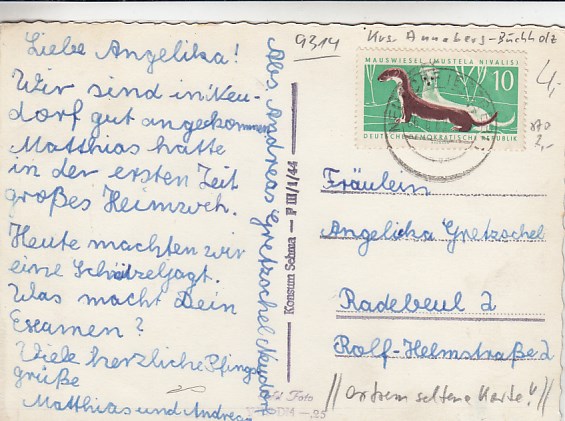 Liebe Angelika!
Wir sind in Neu-
dorf gut angekommen
Matthias hatte
in der ersten Zeit
großes Heimweh.
Heute machten wir
eine Schnitzeljagt.
Was macht Dein
Examen?
Viele herzliche Pfingst
grüße
Matthias und Andreas
Abs. Andreas Gretzschel Neudorf
Konsum Sehma — P III/1/44 —
Foto
-.25
9314
Krs. Annaberg-Buchholz
MAUSWIESEL (MUSTELA NIVALIS)
10
DEUTSCHE DEMOKRATISCHE REPUBLIK
4,-
2,-
Fräulein
Angelika Gretzschel
Radebeul 2
Rolf-Helmstraße 2
//extrem seltene Karte!"//